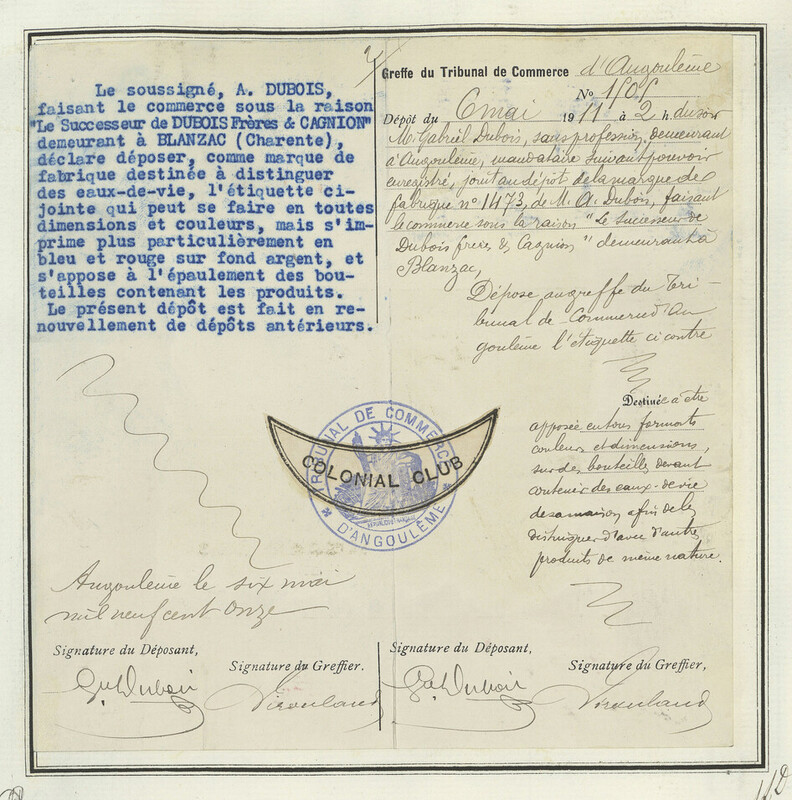 Le soussigné, A. DUBOIS,
faisant le commerce sous la raison
"Le Successeur de DUBOIS Frères & CAGNION"
demeurant à BLANZAC (Charente),
déclare déposer, comme marque de
fabrique destinée à distinguer
des eaux-de-vie, l'étiquette ci-
jointe qui peut se faire en toutes
dimensions et couleurs, mais s'im-
prime plus particulièrement en
bleu et rouge sur fond argent, et
s'appose à l'épaulement des bou-
teilles contenant les produits.
Le présent dépôt est fait en re-
nouvellement de dépôts antérieurs.
Greffe du Tribunal de Commerce d'Angoulême
No
Dépôt du 6 mai 1911 à 2 h. du soir
M. Gabriel Dubois, sans profession, demeurant
à Angoulême, mandataire suivant pouvoir
enregistré, joint au dépôt de la marque de
fabrique no 1473, de M. A. Dubois, faisant
le commerce sous la raison "Le Successeur de
Dubois frères & Cagnion" demeurant à
Blanzac,
Dépose au greffe du Tri-
bunal de Commerce d'An
goulême l'étiquette ci contre
Destinée à être
apposée en tous formats
couleurs et dimensions,
sur des bouteilles devant
contenir des eaux-de-vie
de sa maison afin de les
distinguer d'avec d'autres
produits de même nature.
TRIBUNAL DE COMMERCE
COLONIAL CLUB
D'ANGOULÊME
Angoulême le six mai
mil neuf cent onze
Signature du Déposant,
Signature du Greffier.
Gab Dubois
Signature du Déposant,
Signature du Greffier,
Gab Dubois